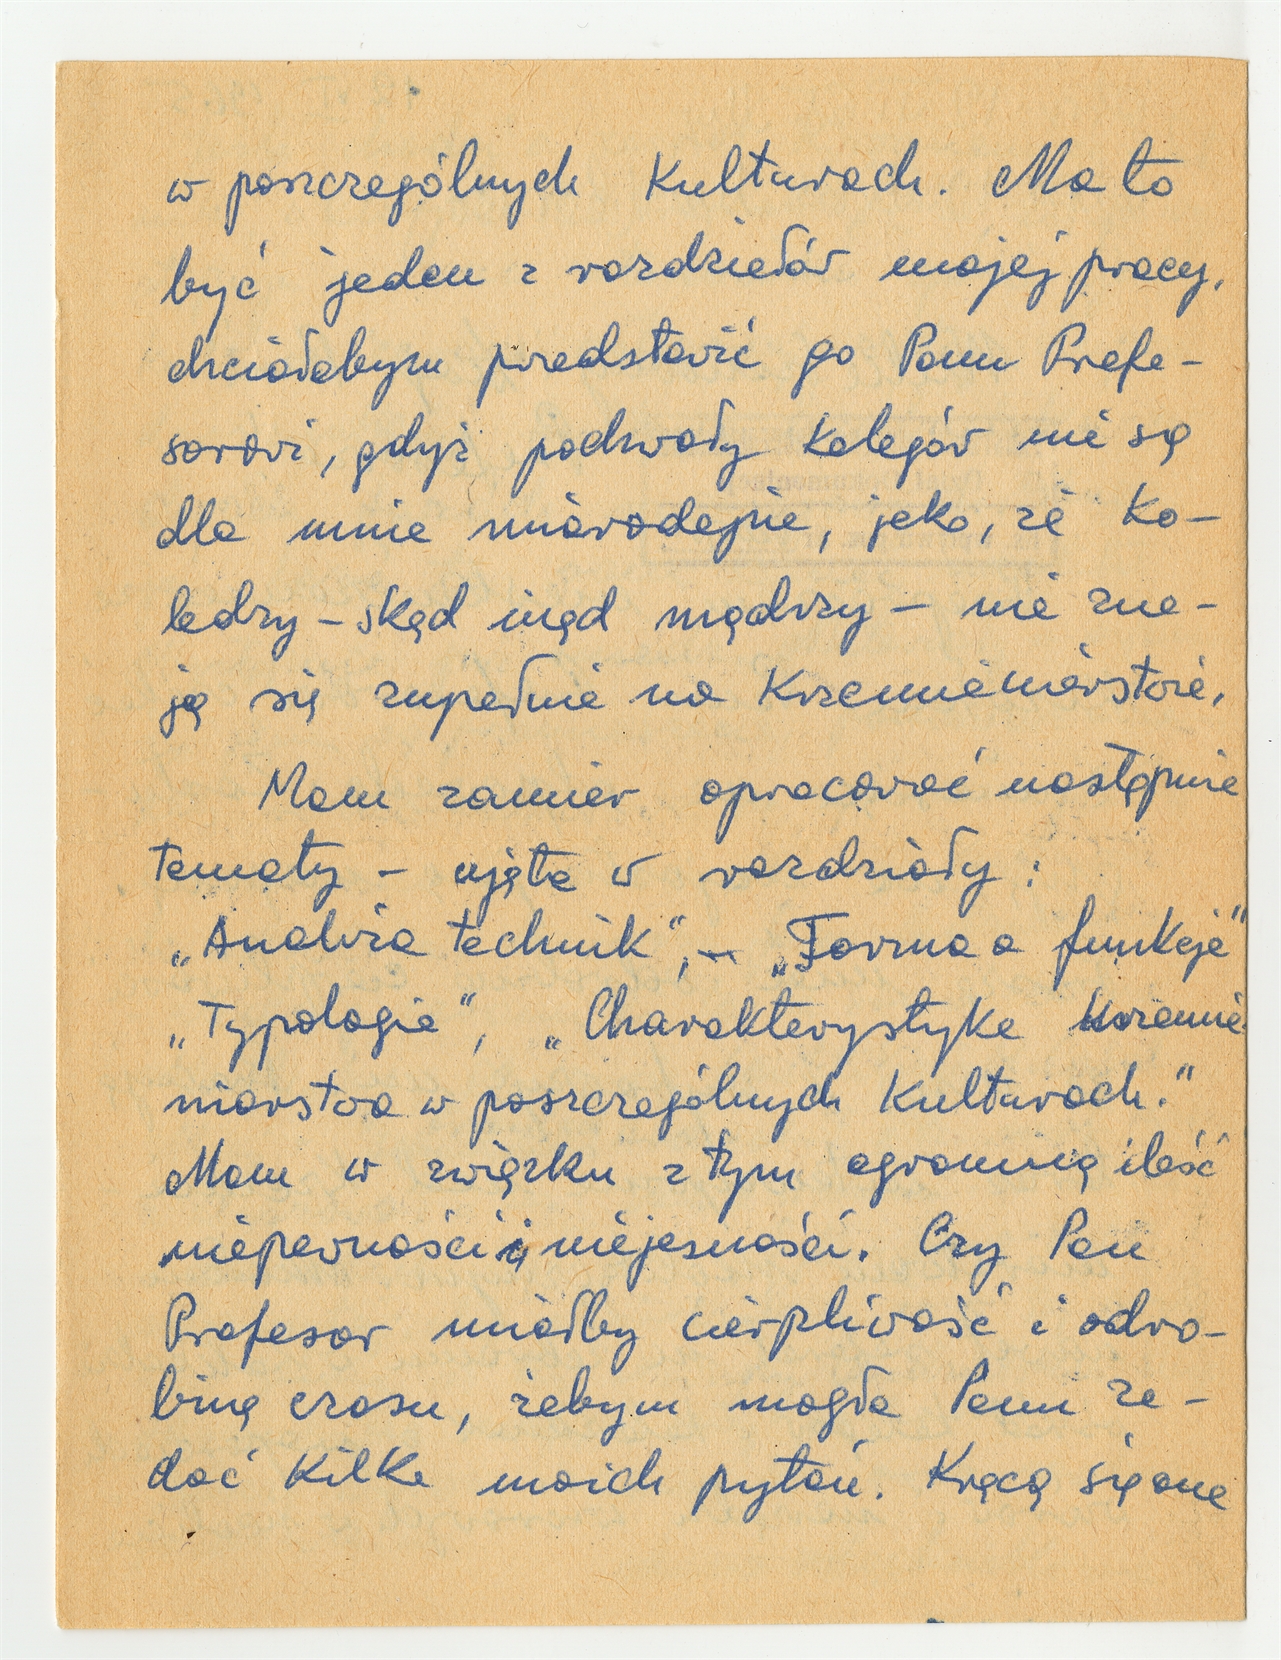 w poszczególnych kulturach. Ma to
być jeden z rozdziałów mojej pracy,
chciałabym przedstawić go Panu Profe-
sorowi, gdyż pochwały kolegów nie są
dla mnie miarodajne, jako, że ko-
ledzy – skąd inąd mądrzy – nie zna-
ją się zupełnie na krzemieniarstwie.
Mam zamiar opracować następnie
tematy – ujęte w rozdziały :
„Analiza technik”, – „Forma a funkcja”
„Typologia”, „Charakterystyka krzemie-
niarstwa w poszczególnych kulturach.”
Mam w związku z tym ogromną ilość
niepewności i niejasności. Czy Pan
Profesor miałby cierpliwość i odro-
binę czasu, żebym mogła Panu za-
dać kilka moich pytań. Kręcą się one